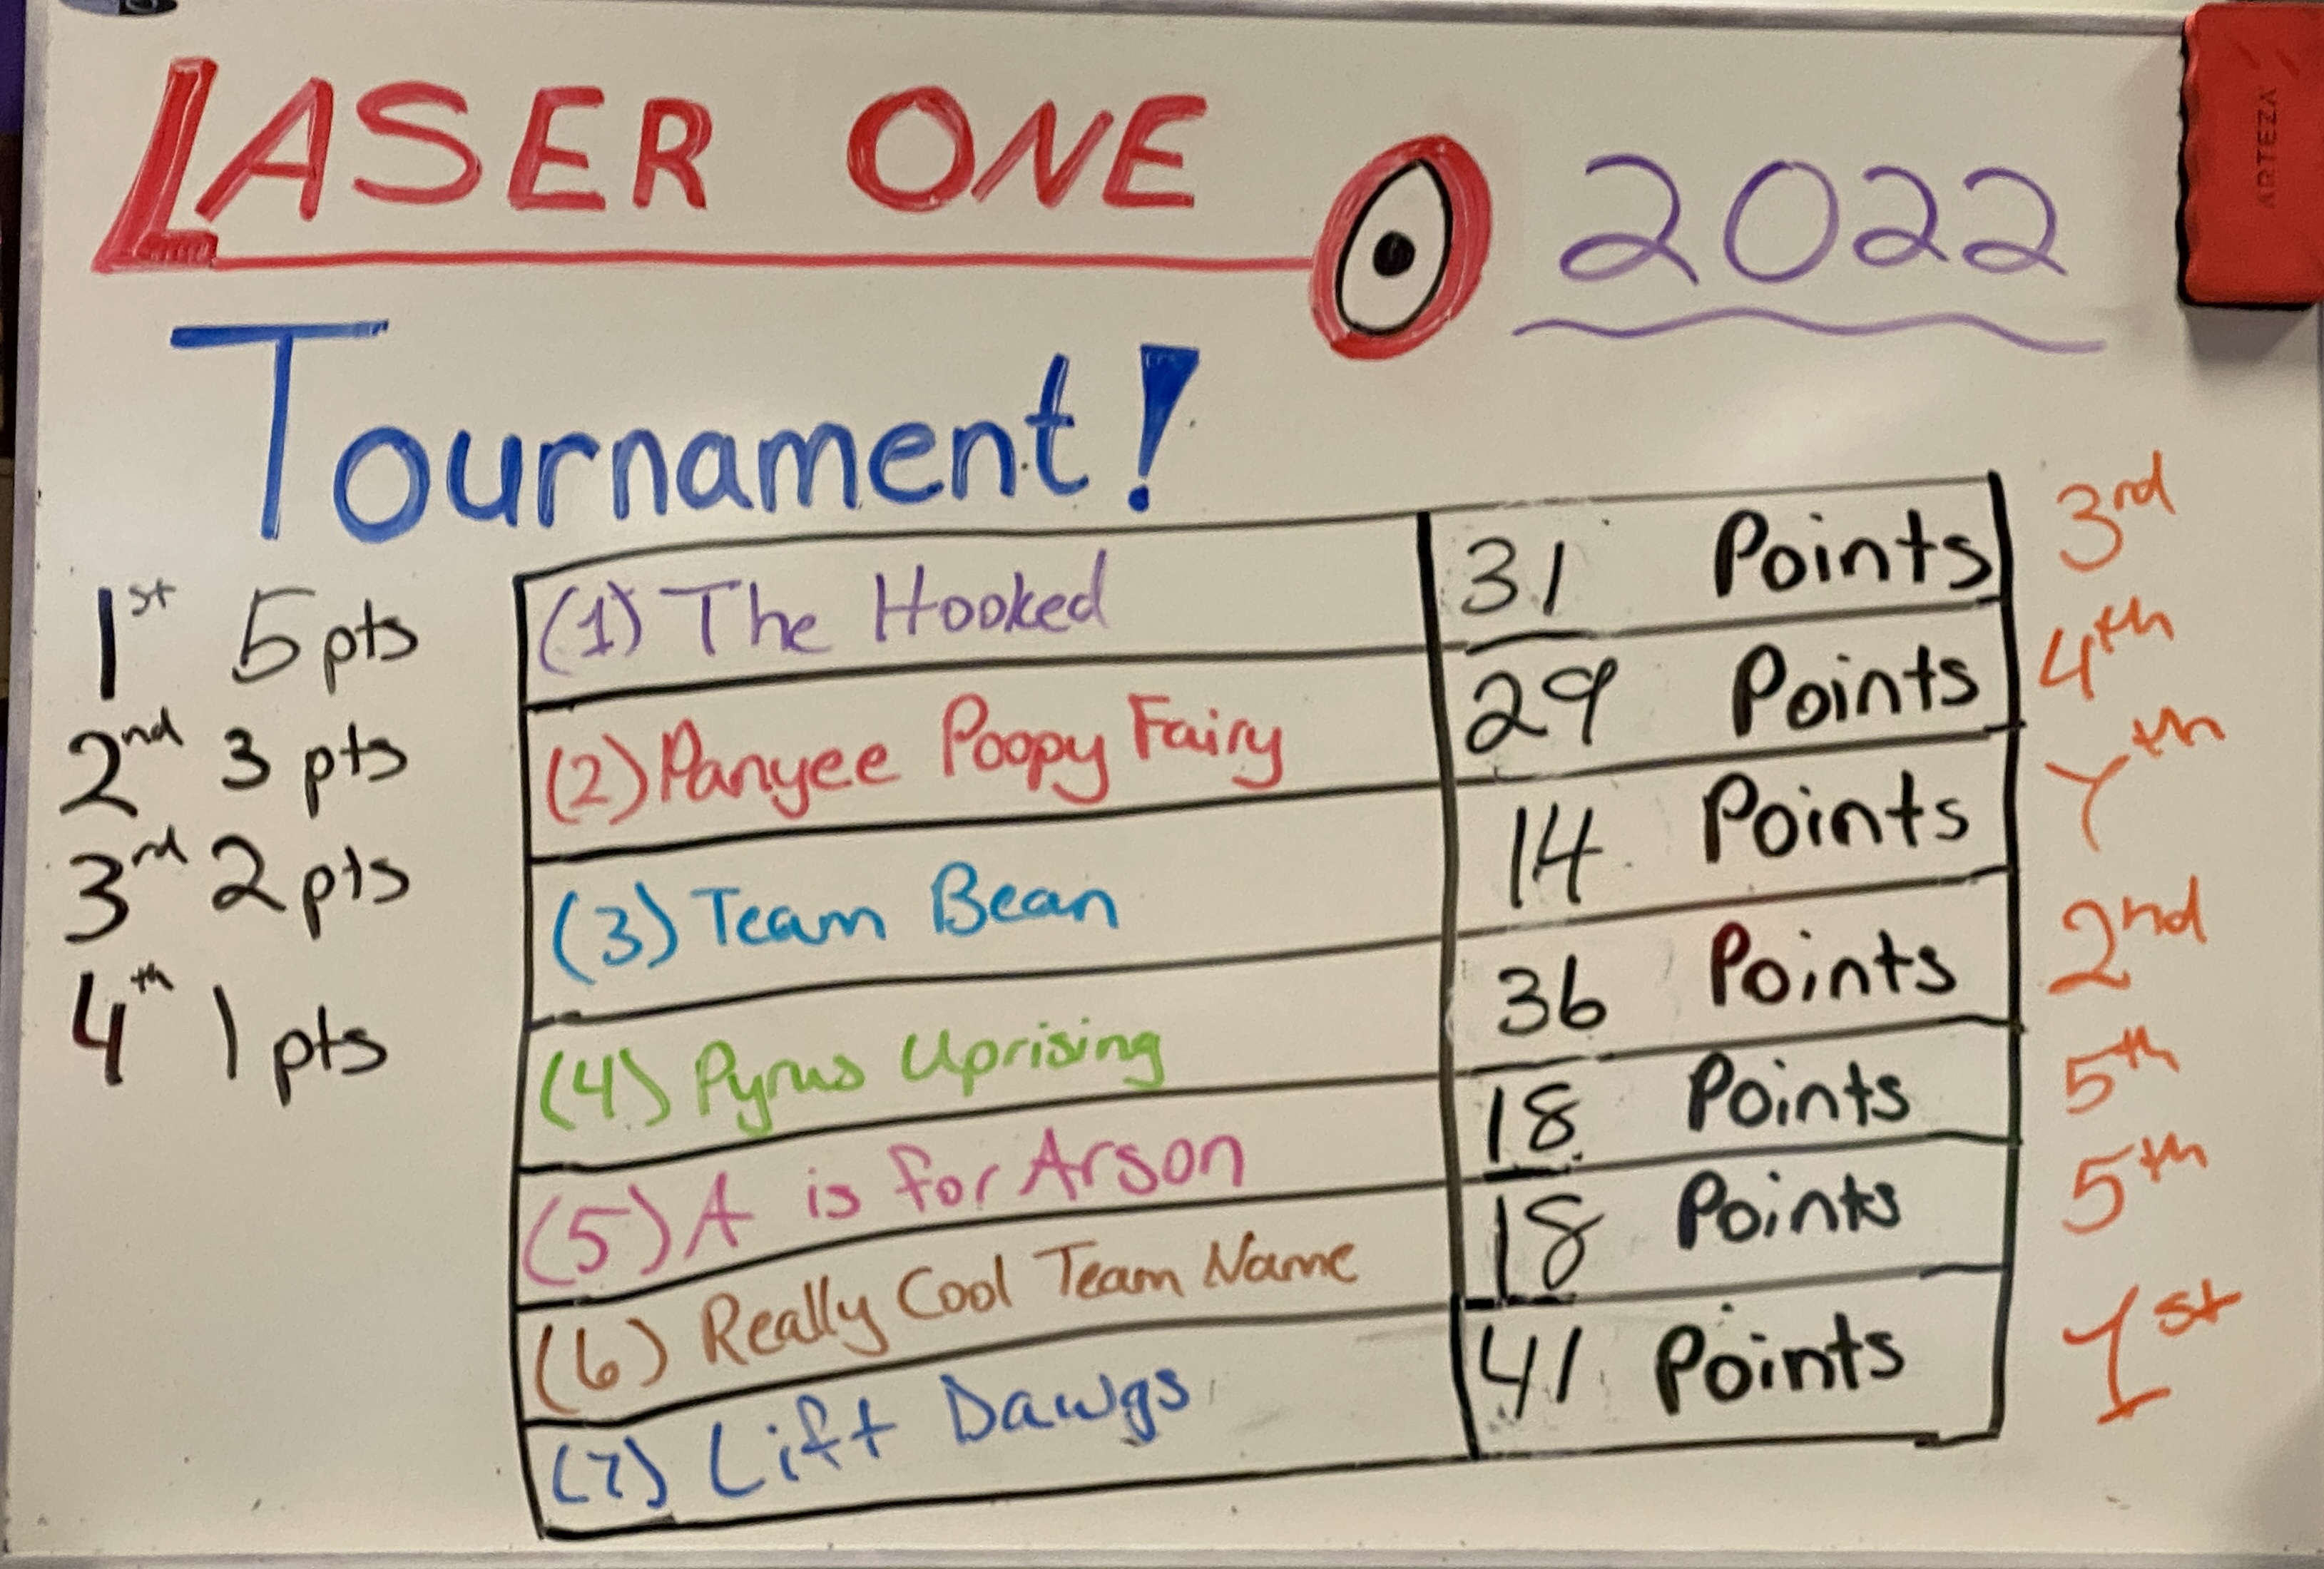 LASER ONE 2022
Tournament!
1st 5 pts
2nd 3 pts
3rd 2 pts
4th 1 pts
(1) The Hooked 31 Points 3rd
(2) Panyee Poopy Fairy 29 Points 4th
(3) Team Bean 14 Points 7th
(4) Pyrus Uprising 36 Points 2nd
(5) A is for Arson 18 Points 5th
(6) Really Cool Team Name 18 Points 5th
(7) Lift Dawgs 41 Points 1st
ARTEZA